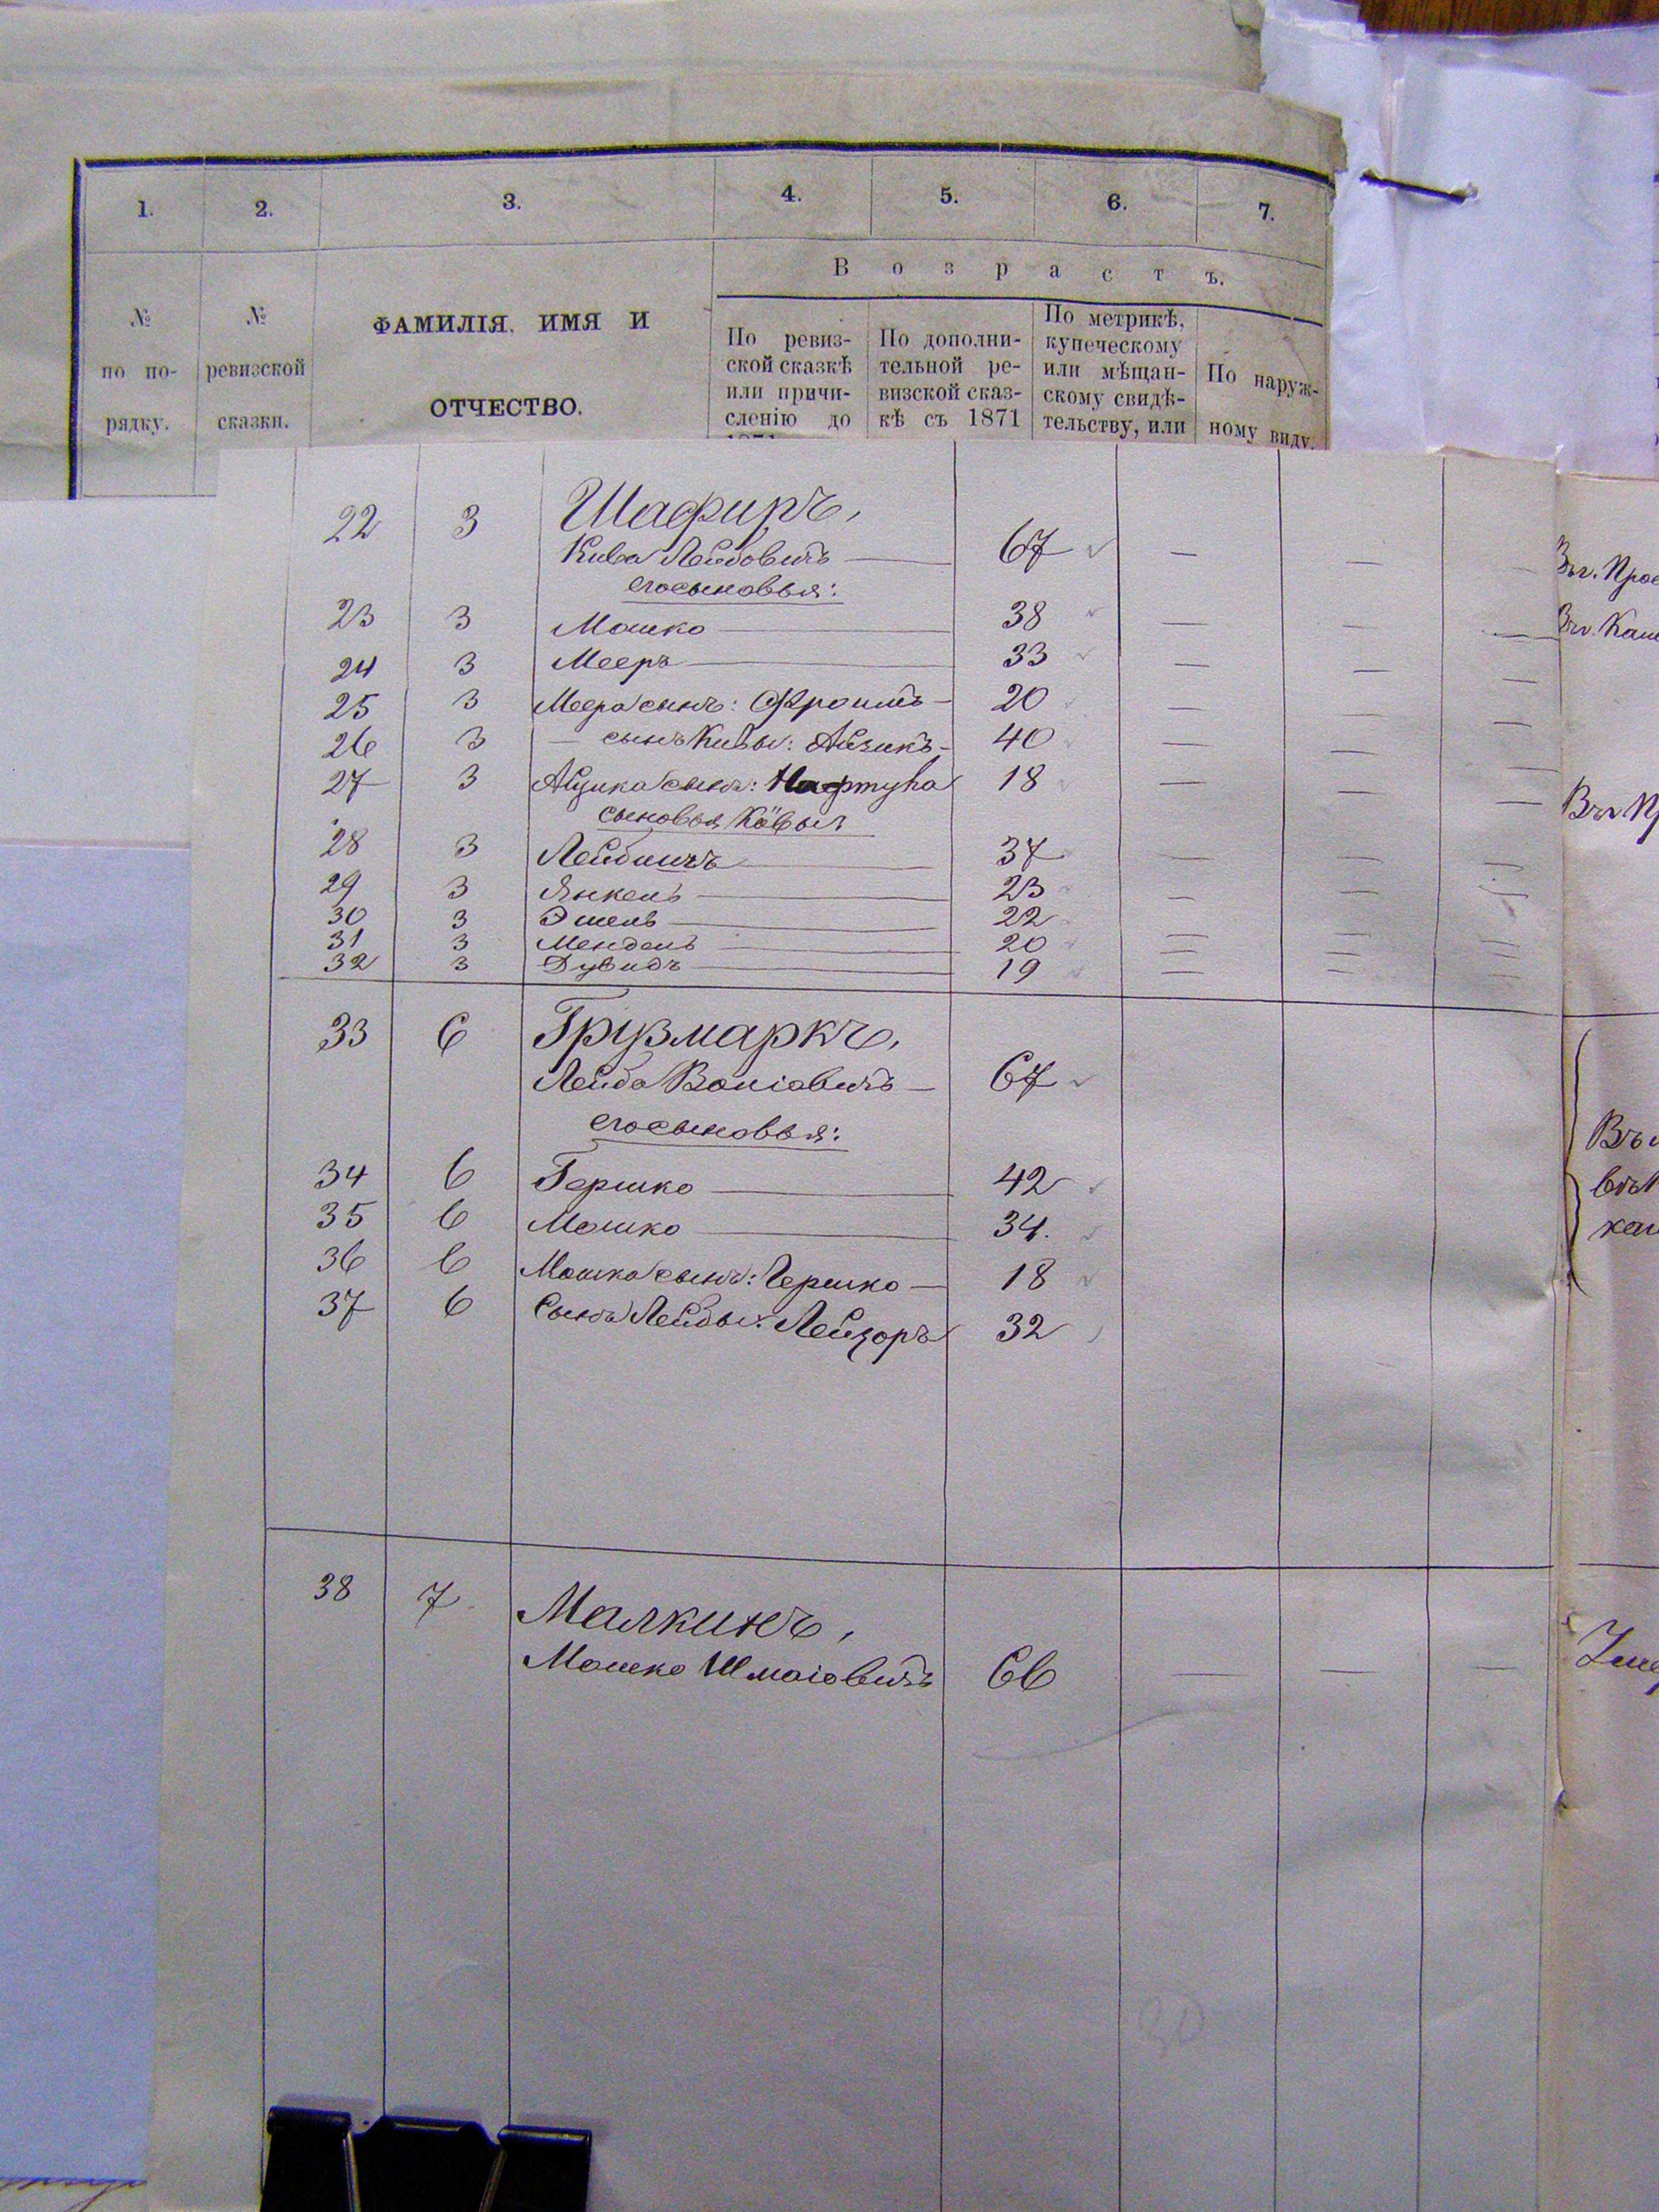 1. 2. 3. 4. 5. 6. 7.
В о з р а с т ъ.
№ по по- рядку.
№ ревизской сказки.
ФАМИЛІЯ. ИМЯ И
ОТЧЕСТВО.
По ревиз-
ской сказкѣ
или причи-
сленію до
1871
По дополни-
тельной ре-
визской сказ-
кѣ съ 1871
По метрикѣ,
купеческому
или мѣщан-
скому свидѣ-
тельству, или
По наруж-
ному виду.
22 3 Шафиръ,
Кива Лейбовичъ — 67 — —
его сыновья:
23 3 Мошко — 38 — — —
24 3 Мееръ — 33 — — —
25 3 Меера сынъ: Фроимъ — 20 — — —
26 3 — сынъ Кивы: Айзикъ — 40 — — —
27 3 Айзика сынъ: Нафтула 18 — — —
сыновья Кивы
28 3 Лейбишъ — 37 — — —
29 3 Янкель — 23 — — —
30 3 — 22
31 3 Мендель — 20 — — —
32 3 Дувидъ — 19 — — —
33 6 Грузмаркъ,
Лейба — 67
его сыновья:
34 6 Гершко — 42
35 6 Мошко — 34.
36 6 Мошка сынъ: Гершко — 18
37 6 Сынъ Лейбы: Лейзоръ 32
38 7 Малкинъ,
Мошко Шмаіовичъ 66 — — —